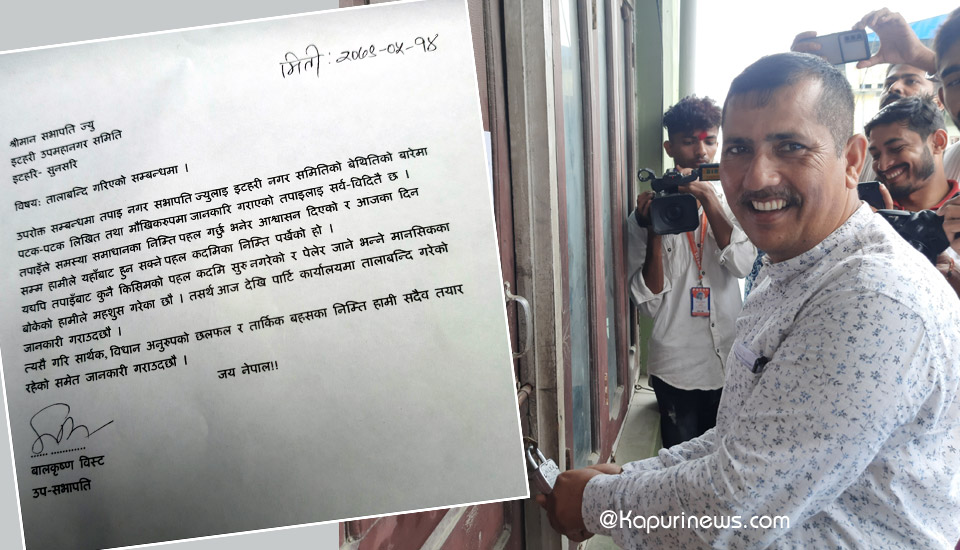 मिती : २०७९-०५-१४
श्रीमान सभापति ज्यु
इटहरी उपमहानगर समिति
इटहरि- सुनसरि
विषय: तालाबन्दि गरिएको सम्बन्धमा ।
उपरोक्त सम्बन्धमा तपाइ नगर सभापति ज्युलाइ इटहरी नगर समितिको बेथितिको बारेमा
पटक-पटक लिखित तथा मौखिकरुपमा जानकारि गराएको तपाइलाइ सर्व-विदितै छ ।
तपाइँले समस्या समाधानका निम्ति पहल गर्छु भनेर आश्वासन दिएको र आजका दिन
सम्म हामीले यहाँबाट हुन सक्ने पहल कदमिका निम्ति पर्खेको हो ।
यद्यपि तपाइँबाट कुनै किसिमको पहल कदमि सुरु नगरेको र पेलेर जाने भन्ने मानसिकका
बोकेको हामीले महशुस गरेका छौ । तसर्थ आज देखि पार्टि कार्यालयमा तालाबन्दि गरेको
जानकारी गराउदछौ ।
त्यसै गरि सार्थक, विधान अनुरुपको छलफल र तार्किक बहसका निम्ति हामी सदैव तयार
रहेको समेत जानकारी गराउदछौ ।
जय नेपाल!!
बालकृष्ण विस्ट
उप-सभापति
@Kapurinews.com